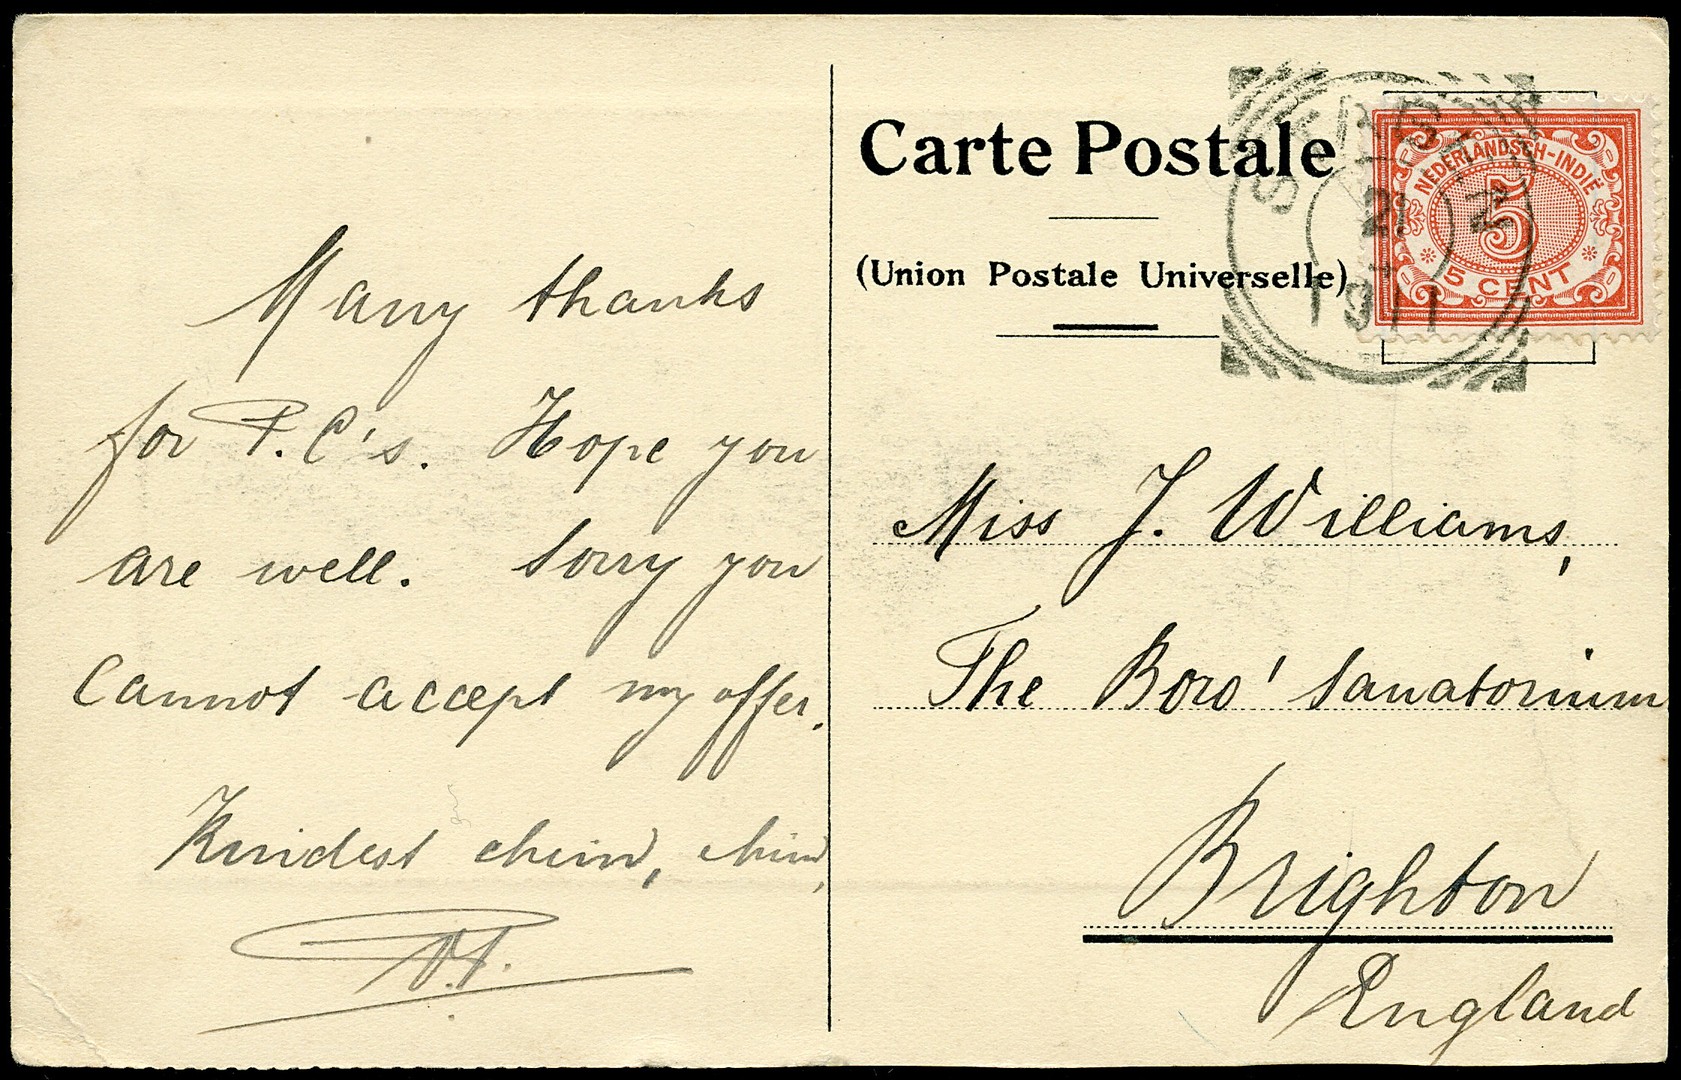 Many thanks
for P.C's. Hope you
are well. Sorry you
Cannot accept my offer.
Kindest chin, chin,
Carte Postale
(Union Postale Universelle)
NEDERLANDSCH-INDIË
5
5 CENT
21
1911
Miss J. Williams,
The Boro' Sanatorium
Brighton
England